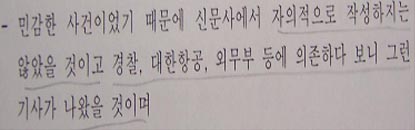 - 민감한 사건이었기 때문에 신문사에서 자의적으로 작성하지는
않았을 것이고 경찰, 대한항공, 외무부 등에 의존하다 보니 그런
기사가 나왔을 것이며